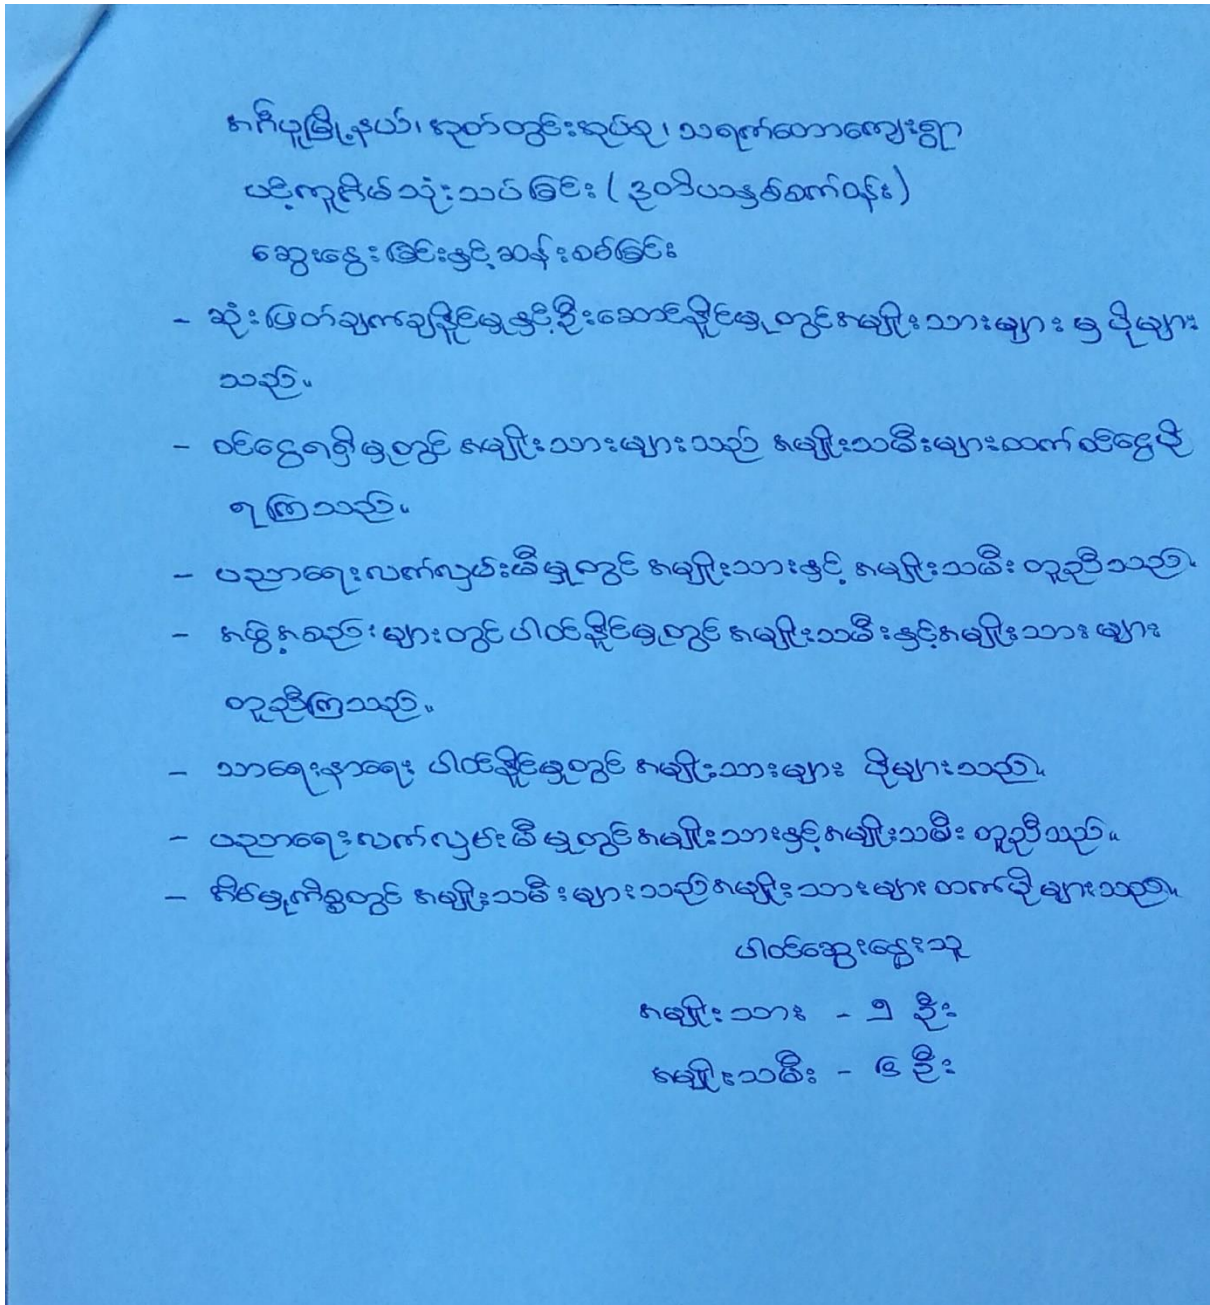 အင်္ဂပူမြို့နယ်၊ အုတ်တွင်းအုပ်စု၊ သရက်တောကျေးရွာ
ပင့်ကူအိမ်သုံးသပ်ခြင်း (ဒုတိယနှစ်ဝက်ဝန်း)
ဆွေးနွေးခြင်းနှင့်ဆန်းစစ်ခြင်း
- ဆုံးဖြတ်ချက်ချနိုင်မှုနှင့်ဦးဆောင်နိုင်မှုတွင်အမျိုးသားများ မှ ပိုများ
သည်။
- ဝင်ငွေရရှိမှုတွင် အမျိုးသားများသည် အမျိုးသမီးများထက် ဝင်ငွေပို
ရကြသည်။
- ပညာရေးလက်လှမ်းမီမှုတွင် အမျိုးသားနှင့် အမျိုးသမီး တူညီသည်။
- အဖွဲ့အစည်းများတွင်ပါဝင်နိုင်မှုတွင် အမျိုးသမီးနှင့်အမျိုးသားများ
တူညီကြသည်။
- သာရေးနာရေး ပါဝင်နိုင်မှုတွင် အမျိုးသားများ ပိုများသည်။
- ပညာရေးလက်လှမ်းမီမှုတွင်အမျိုးသားနှင့်အမျိုးသမီး တူညီသည်။
- အိမ်မှုကိစ္စတွင် အမျိုးသမီးများသည်အမျိုးသားများထက်ပိုများသည်။
ပါဝင်ဆွေးနွေးသူ
အမျိုးသား - ၅ ဦး
အမျိုးသမီး - ၆ ဦး